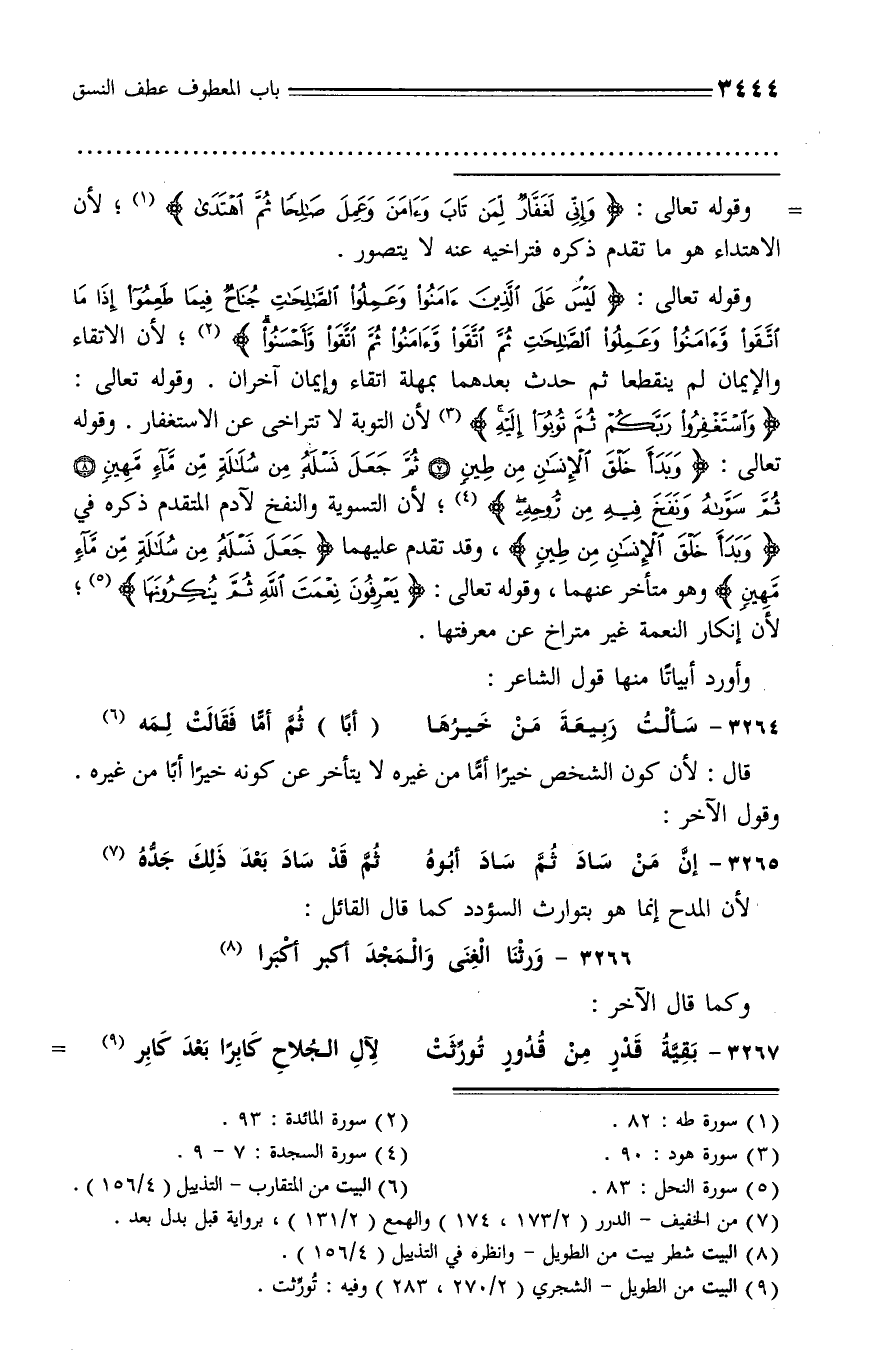 ٣٤٤٤ باب المعطوف عطف النسق
= وقوله تعالى : ﴿ وَإِنِّي لَغَفَّارٌ لِّمَن تَابَ وَءَامَنَ وَعَمِلَ صَٰلِحًا ثُمَّ ٱهْتَدَىٰ ﴾ (١) ؛ لأن
الاهتداء هو ما تقدم ذكره فتراخيه عنه لا يتصور .
وقوله تعالى : ﴿ لَيْسَ عَلَى ٱلَّذِينَ ءَامَنُوا۟ وَعَمِلُوا۟ ٱلصَّٰلِحَٰتِ جُنَاحٌ فِيمَا طَعِمُوٓا۟ إِذَا مَا
ٱتَّقَوا۟ وَّءَامَنُوا۟ وَعَمِلُوا۟ ٱلصَّٰلِحَٰتِ ثُمَّ ٱتَّقَوا۟ وَّءَامَنُوا۟ ثُمَّ ٱتَّقَوا۟ وَّأَحْسَنُوا۟ ﴾ (٢) ؛ لأن الاتقاء
والإيمان لم ينقطعا ثم حدث بعدهما بمهلة اتقاء وإيمان آخران . وقوله تعالى :
﴿ وَٱسْتَغْفِرُوا۟ رَبَّكُمْ ثُمَّ تُوبُوٓا۟ إِلَيْهِ ﴾ (٣) لأن التوبة لا تتراخى عن الاستغفار . وقوله
تعالى : ﴿ وَبَدَأَ خَلْقَ ٱلْإِنسَٰنِ مِن طِينٍ ۝٧ ثُمَّ جَعَلَ نَسْلَهُۥ مِن سُلَٰلَةٍ مِّن مَّآءٍ مَّهِينٍ ۝٨
ثُمَّ سَوَّىٰهُ وَنَفَخَ فِيهِ مِن رُّوحِهِۦ ﴾ (٤) ؛ لأن التسوية والنفخ لآدم المتقدم ذكره في
﴿ وَبَدَأَ خَلْقَ ٱلْإِنسَٰنِ مِن طِينٍ ﴾ ، وقد تقدم عليهما ﴿ جَعَلَ نَسْلَهُۥ مِن سُلَٰلَةٍ مِّن مَّآءٍ
مَّهِينٍ ﴾ وهو متأخر عنهما ، وقوله تعالى : ﴿ يَعْرِفُونَ نِعْمَتَ ٱللَّهِ ثُمَّ يُنكِرُونَهَا ﴾ (٥) ؛
لأن إنكار النعمة غير متراخ عن معرفتها .
وأورد أبياتًا منها قول الشاعر :
٣٢٦٤ - سَألْتُ رَبِيعَةَ مَنْ خَيرُهَا ( أبًا ) ثُمَّ أمًّا فَقَالَتْ لِمَه (٦)
قال : لأن كون الشخص خيرًا أمًّا من غيره لا يتأخر عن كونه خيرًا أبًا من غيره .
وقول الآخر :
٣٢٦٥ - إنَّ مَنْ سَادَ ثُمَّ سَادَ أبُوهُ ثُمَّ قَدْ سَادَ بَعْدَ ذَلِكَ جَدُّهُ (٧)
لأن المدح إنما هو بتوارث السؤدد كما قال القائل :
٣٢٦٦ - وَرِثْنَا الْغِنَى وَالْمَجْدَ أكبر أكْبَرا (٨)
وكما قال الآخر :
٣٢٦٧ - بَقِيَّةُ قَدْرٍ مِنْ قُدُورٍ تُورِّثَتْ لِآلِ الجُلاحِ كَابِرًا بَعْدَ كَابِر (٩) =
(١) سورة طه : ٨٢ . (٢) سورة المائدة : ٩٣ .
(٣) سورة هود : ٩٠ . (٤) سورة السجدة : ٧ - ٩ .
(٥) سورة النحل : ٨٣ . (٦) البيت من المتقارب - التذييل ( ١٥٦/٤ ) .
(٧) من الخفيف - الدرر ( ١٧٣/٢ ، ١٧٤ ) والهمع ( ١٣١/٢ ) ، برواية قبل بدل بعد .
(٨) البيت شطر بيت من الطويل - وانظره في التذييل ( ١٥٦/٤ ) .
(٩) البيت من الطويل - الشجري ( ٢٧٠/٢ ، ٢٨٣ ) وفيه : تُورِّثت .